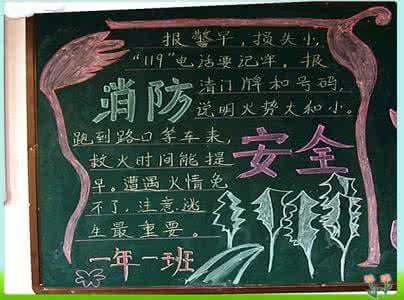 报警早,损失小,
“119”电话要记牢。报
消防
清门牌和号码,
说明火势大和小。
跑到路口等车来,
救火时间能提
安全
早。遭遇火情免
不了,注意逃
生最重要。
一年一班